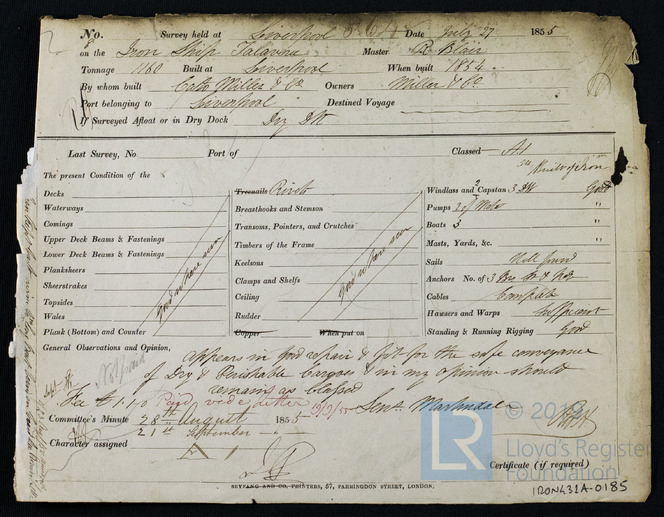 No. Survey held at Liverpool Date July 27 1855
on the Iron Ship Talavera Master R. Blair
Tonnage 1160 Built at Liverpool When built 1854
By whom built Cato Miller & Co Owners Miller & Co
Port belonging to Liverpool Destined Voyage
If Surveyed Afloat or in Dry Dock Dry Dk
Last Survey, No Port of Classed A1
Built of Iron
The present Condition of the
Decks
Waterways
Comings
Upper Deck Beams & Fastenings
Lower Deck Beams & Fastenings
Planksheers
Sheerstrakes
Topsides
Wales
Plank (Bottom) and Counter
Good where seen
Treenails Rivets
Breasthooks and Stemson
Transoms, Pointers, and Crutches
Timbers of the Frame
Keelsons
Clamps and Shelfs
Ceiling
Rudder
Copper When put on
Good where seen
Windlass and 2 Capstan Good
Pumps 2 of Metal "
Boats 5 "
Masts, Yards, &c. "
Sails Well found
Anchors No. of 3
Cables Complete
Hawsers and Warps Sufficient
Standing & Running Rigging Good
General Observations and Opinion,
Appears in Good repair & fit for the safe conveyance
of Dry & Perishable Cargoes & in my opinion should
remain as Classed
Not paid
Fee £ 1.1.0 Paid, vide letter
Committee's Minute 28th August 1855
21st September
Character assigned A1
© 2019
LR
Lloyd's Register
Foundation
Certificate (if required)
SEYFANG AND CO, PRINTERS, 57, FARRINGDON STREET, LONDON.
IRON432A-0185